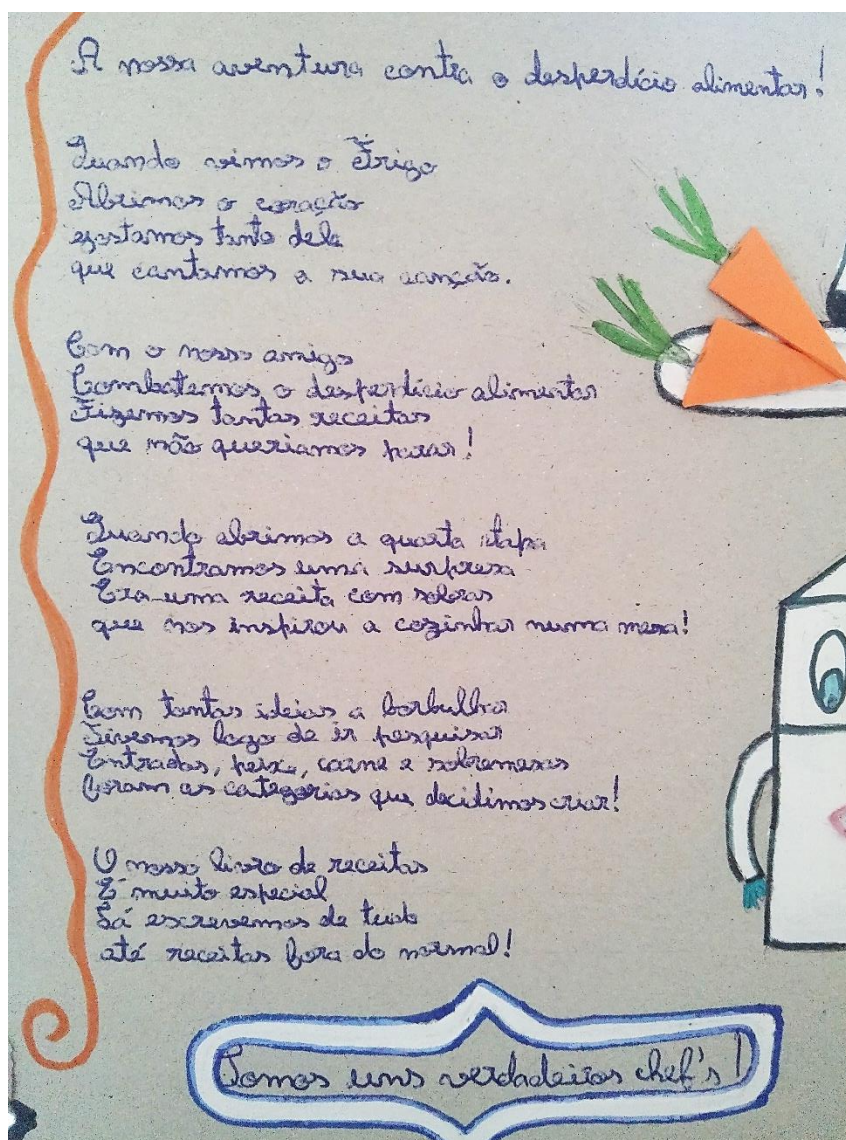 A nossa aventura contra o desperdício alimentar!
Quando vimos o Frigo
Abrimos o coração
gostamos tanto dele
que cantamos a sua canção.
Com o nosso amigo
Combatemos o desperdício alimentar
Fizemos tantas receitas
que não queriamos parar!
Quando abrimos a quarta etapa
Encontramos uma surpresa
Era uma receita com sobras
que nos inspirou a cozinhar numa mesa!
Com tantas ideias a borbulhar
Tivemos logo de ir pesquisar
Entradas, peixe, carne e sobremesas
foram as categorias que decidimos criar!
O nosso livro de receitas
É muito especial
Lá escrevemos de tudo
até receitas fora do normal!
Somos uns verdadeiros chef's!